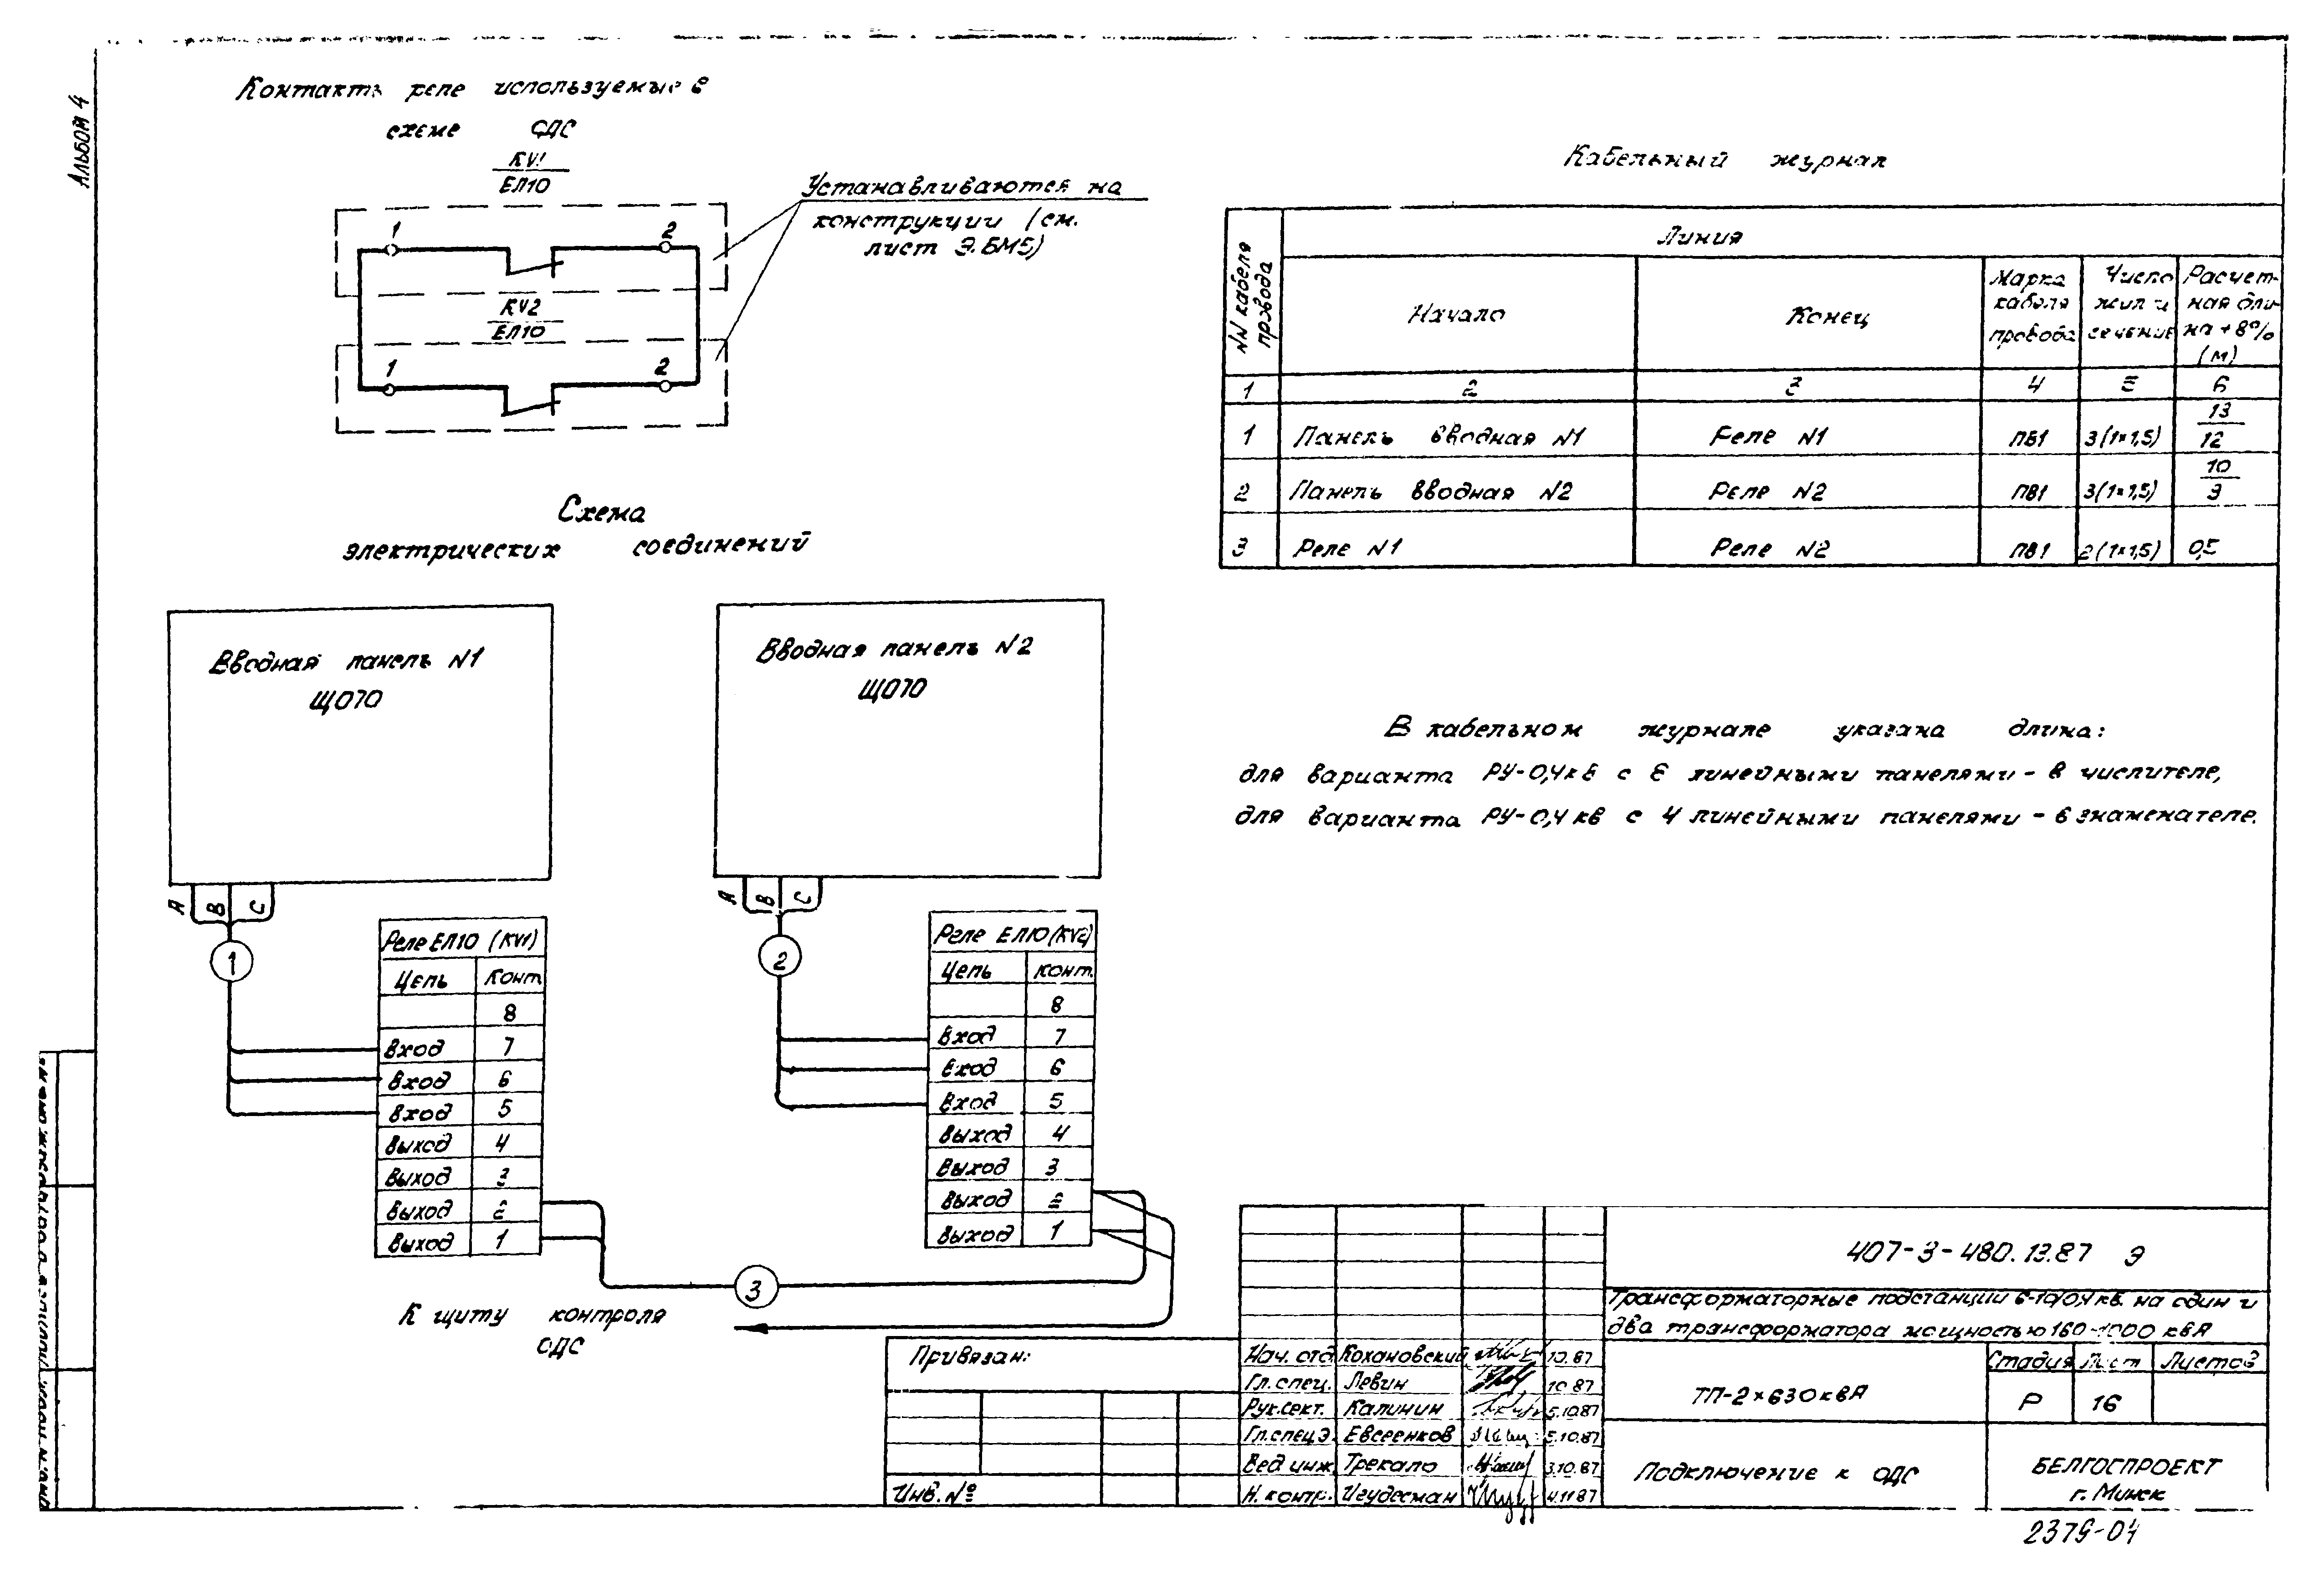 Альбом 4
Контакты реле используемые в
схеме ОДС
KV1
ЕЛ10
1 2
KV2
ЕЛ10
1 2
Устанавливаются на
конструкции (см.
лист Э.БМ5)
Схема
электрических соединений
Вводная панель №1
ЩО70
А В С
1
Реле ЕЛ10 (KV1)
Цепь Конт.
8
Вход 7
Вход 6
Вход 5
Выход 4
Выход 3
Выход 2
Выход 1
Вводная панель №2
ЩО70
А В С
2
Реле ЕЛ10 (KV2)
Цепь Конт.
8
Вход 7
Вход 6
Вход 5
Выход 4
Выход 3
Выход 2
Выход 1
3
К щиту контроля
ОДС
Кабельный журнал
NN кабеля провода
Линия
Начало
Конец
Марка кабеля провода
Число жил и сечение
Расчетная длина +8% (м)
1 2 3 4 5 6
1 Панель вводная №1 Реле №1 ПВ1 3(1×1,5) 13/12
2 Панель вводная №2 Реле №2 ПВ1 3(1×1,5) 10/9
3 Реле №1 Реле №2 ПВ1 2(1×1,5) 0,5
В кабельном журнале указана длина:
для варианта РУ-0,4кВ с 6 линейными панелями - в числителе,
для варианта РУ-0,4кВ с 4 линейными панелями - в знаменателе.
407-3-480.13.87 Э
Трансформаторные подстанции 6-10/0,4 кВ на один и
два трансформатора мощностью 160-1000 кВА
Привязан:
Инв. №
Нач. отд. Кохановский 10.87
Гл. спец. Левин 10.87
Рук.сект. Калинин 5.10.87
Гл.спец.Э. Евсеенков 5.10.87
Вед инж. Трекало 3.10.87
Н. контр. Игудесман 4.11.87
ТП-2×630кВА
Стадия Лист Листов
Р 16
Подключение к ОДС
БЕЛГОСПРОЕКТ
г. Минск
2379-04